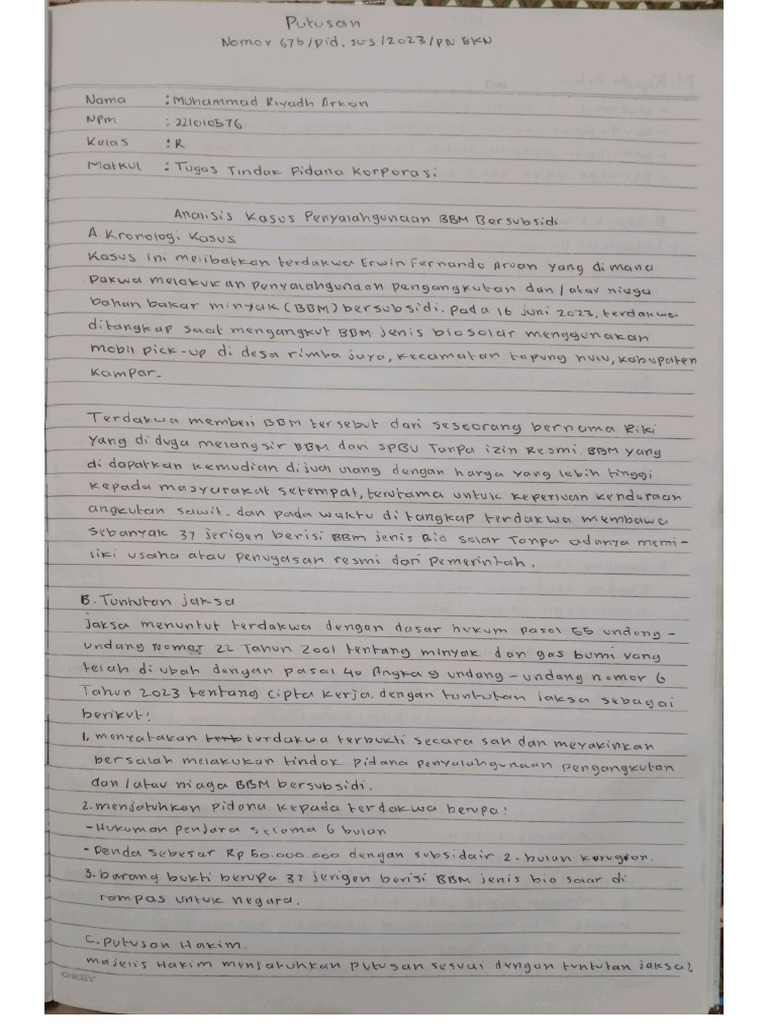 Putusan
Nomor 676/Pid.sus/2023/PN BKN
Nama : Muhammad Riyadh Arkan
Npm : 221010576
Kelas : R
Matkul : Tugas Tindak Pidana Korporasi
Analisis Kasus Penyalahgunaan BBM Bersubsidi
A. Kronologi Kasus
Kasus ini melibatkan terdakwa Erwin Fernando Aruan yang di mana
Dakwa melakukan penyalahgunaan pengangkutan dan/atau niaga
bahan bakar minyak (BBM) bersubsidi. Pada 16 Juni 2023, terdakwa
ditangkap saat mengangkut BBM jenis biosolar menggunakan
mobil pick-up di desa rimba jaya, kecamatan tapung hulu, kabupaten
kampar.
Terdakwa membeli BBM tersebut dari seseorang bernama Riki
yang di duga melangsir BBM dari SPBU Tanpa izin Resmi. BBM yang
di dapatkan kemudian dijual ulang dengan harga yang lebih tinggi
kepada masyarakat setempat, terutama untuk keperluan kendaraan
angkutan sawit. dan pada waktu di tangkap terdakwa membawa
sebanyak 37 jerigen berisi BBM jenis Bio Solar Tanpa adanya memi-
liki usaha atau penugasan resmi dari Pemerintah.
B. Tuntutan jaksa
jaksa menuntut terdakwa dengan dasar hukum pasal 55 undang-
undang Nomor 22 Tahun 2001 tentang minyak dan gas bumi yang
telah di ubah dengan pasal 40 Angka 9 undang-undang nomor 6
Tahun 2023 tentang Cipta Kerja. dengan tuntutan jaksa sebagai
berikut:
1. menyatakan terdakwa terbukti secara sah dan meyakinkan
bersalah melakukan tindak pidana penyalahgunaan pengangkutan
dan/atau niaga BBM bersubsidi.
2. menjatuhkan pidana kepada terdakwa berupa:
-Hukuman penjara selama 6 bulan
-Denda sebesar Rp 50.000.000 dengan subsidair 2. bulan kurungan.
3. barang bukti berupa 37 jerigen berisi BBM jenis bio solar di
rampas untuk negara.
C. Putusan Hakim.
majelis Hakim menjatuhkan Putusan sesuai dengan tuntutan jaksa,
OKEY